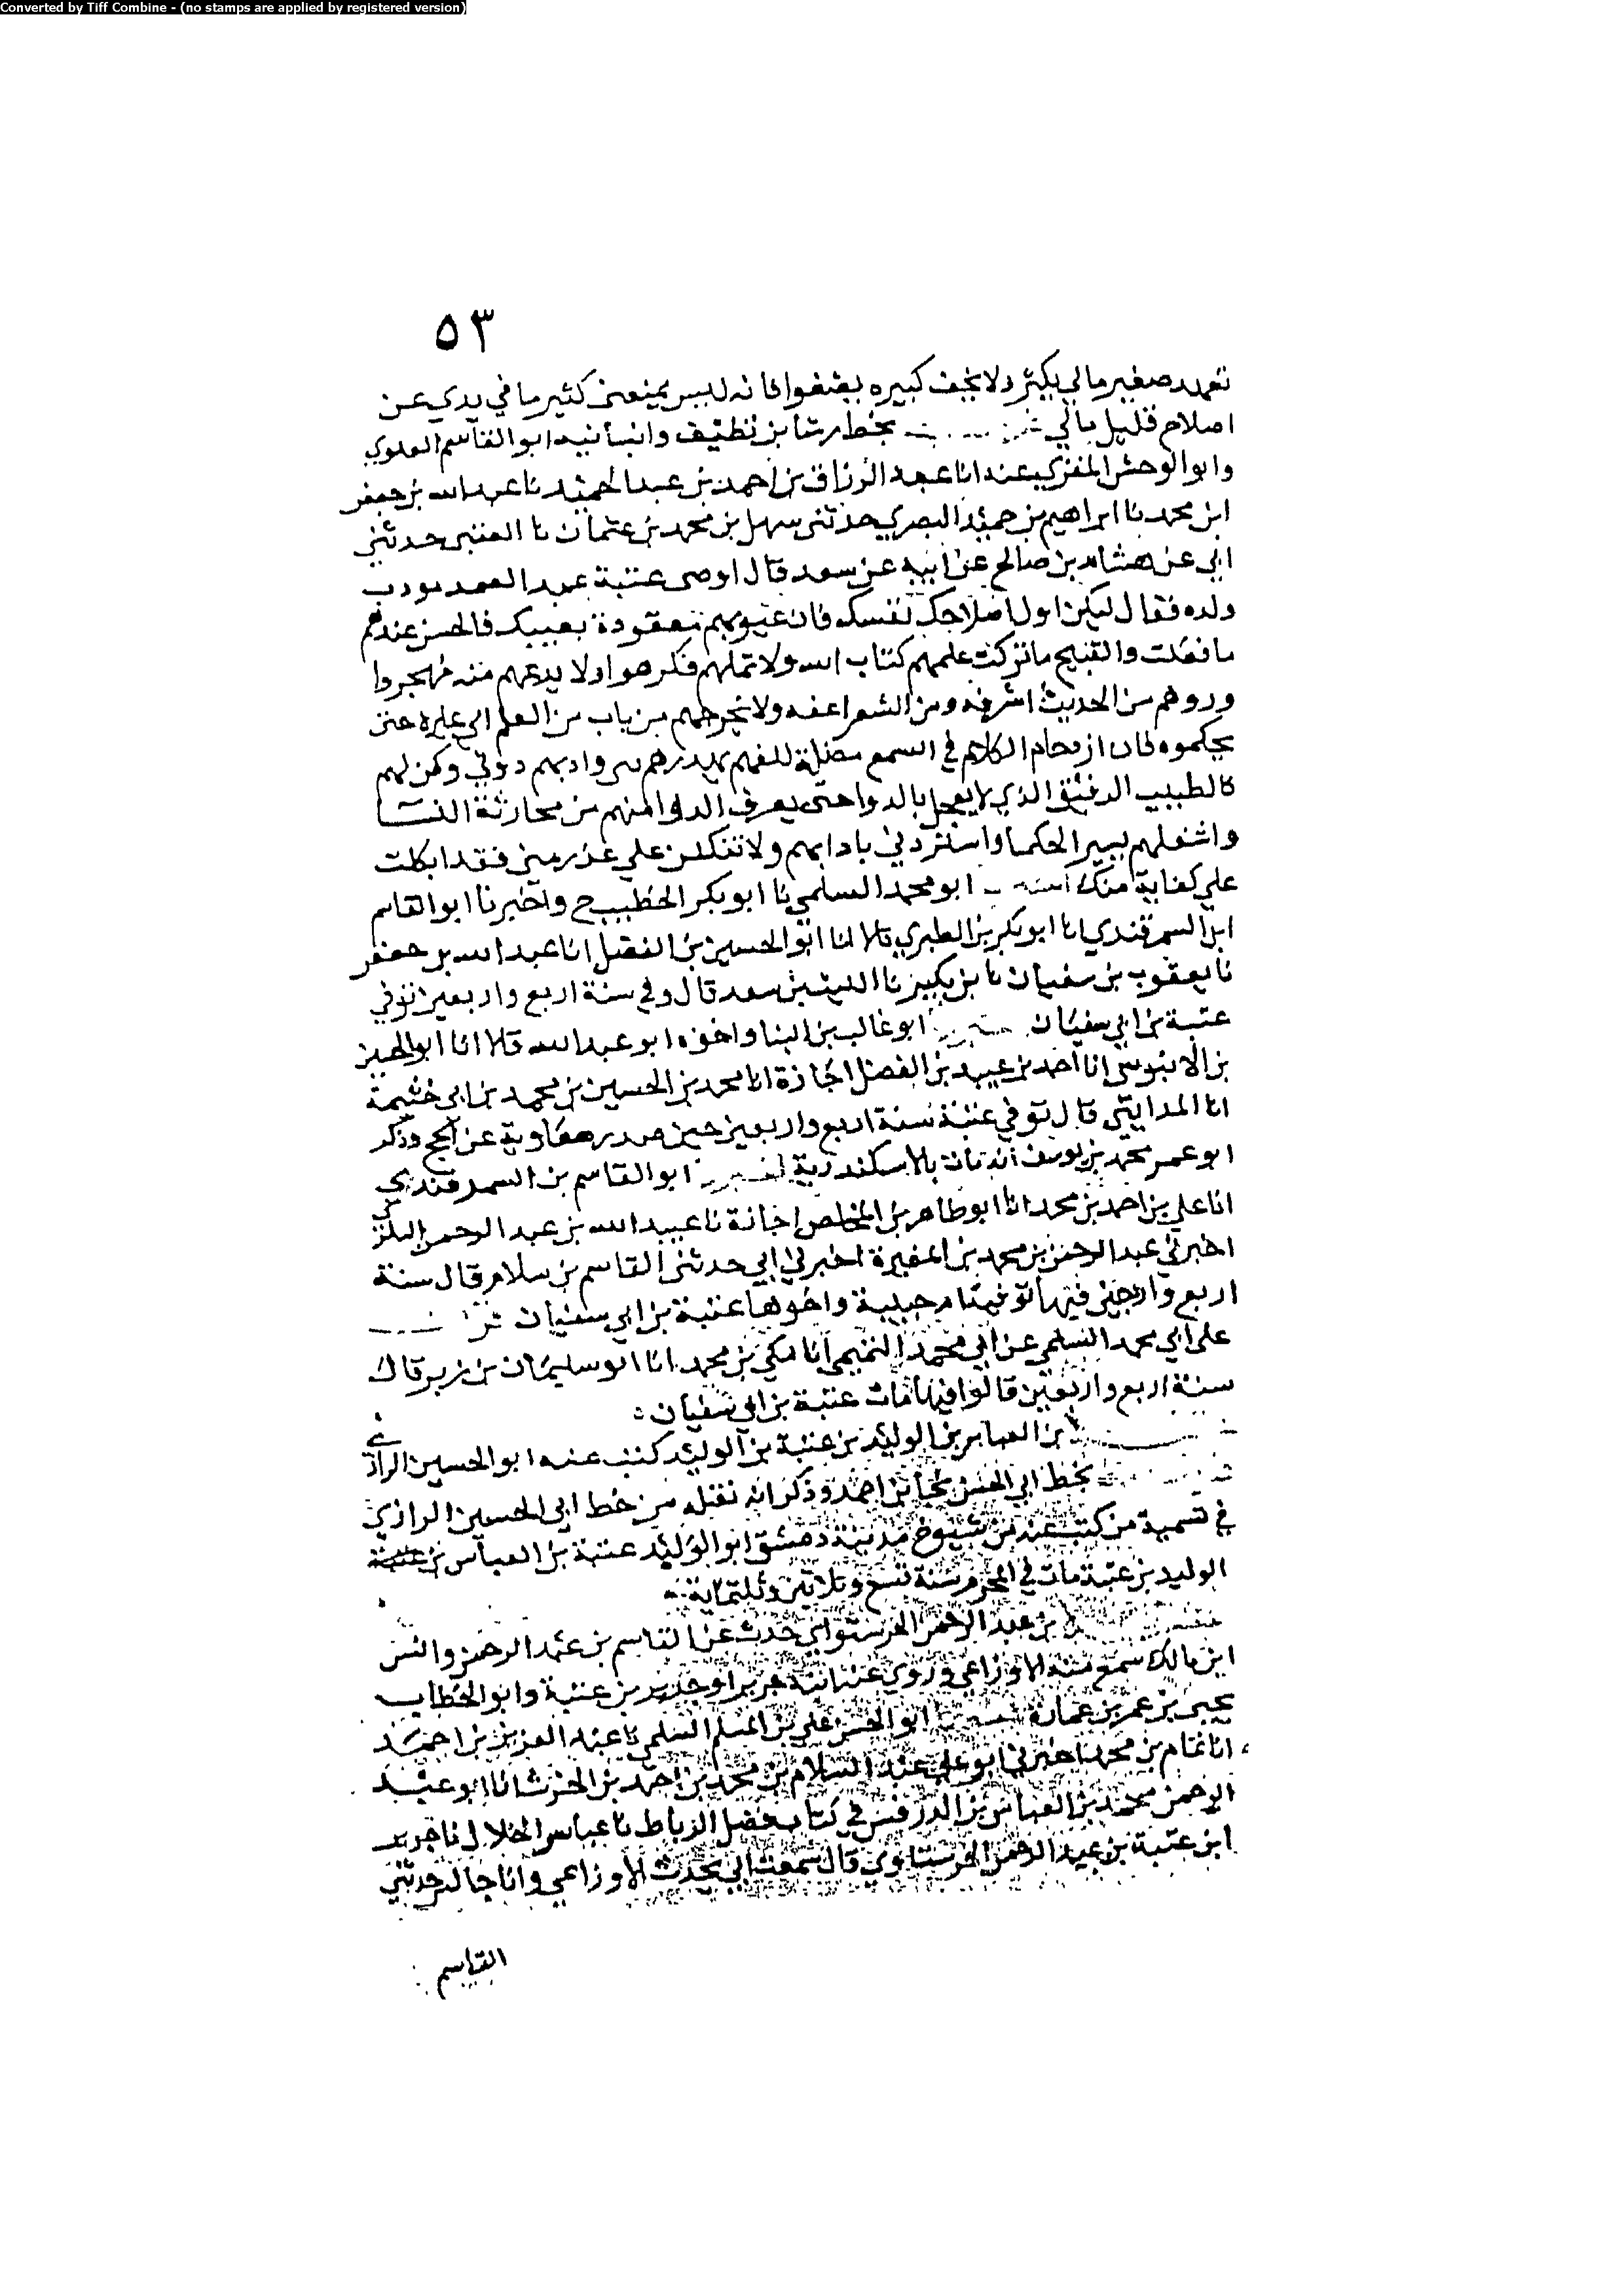 Converted by Tiff Combine - (no stamps are applied by registered version)
٥٣
تعهد صغير مالي يكثر ولا يخف كبيره فانه ليس يمنعني كثير ما في يدي عن
اصلاح قليل مالي بخط رشا بن نظيف وانبانيه ابو القاسم العلوي
وابو الوحش المقري عنه انا عبد الرزاق بن احمد بن عبد الحميد نا عبد الله بن جعفر
ابن محمد نا ابراهيم بن حميد البصري حدثني سهل بن محمد بن عثمان نا العتبي حدثني
ابي عن هشام بن صالح عن ابيه عن سعد قال اوصى عتبة عبد الصمد مودب
ولده فقال ليكن اول اصلاحك نفسك فان عيوبهم معقودة بعيبك فالحسن عندهم
ما فعلت والقبيح ما تركت علمهم كتاب الله ولا تملهم فيكرهوا ولا يدعهم منه فيهجروا
وروهم من الحديث اشرفه ومن الشعر اعفه ولا تخرجهم من باب من العلم الى غيره حتى
يحكموه فان ازدحام الكلام في السمع مضلة للفهم تهددهم بي وادبهم دوني وكن لهم
كالطبيب الرفيق الذي لا يعجل بالدوا حتى يعرف الدا وامنعهم من محادثة النسا
واشغلهم بسير الحكما واستزدني بادابهم ولا تتكلن على عذر مني فقد اتكلت
على كفاية منك ابو محمد السلمي نا ابو بكر الخطيب ح واخبرنا ابو القاسم
ابن السمرقندي انا ابو بكر بن الطبري قالا انا ابو الحسين بن الفضل انا عبد الله بن جعفر
نا يعقوب بن سفيان نا بن بكير نا الليث بن سعد قال وفي سنة اربع واربعين توفي
عتبة بن ابي سفيان ابو غالب بن البنا واخوه ابو عبد الله قالا انا ابو الحسين
بن الابنوسي انا احمد بن عبيد بن الفضل اجازة انا محمد بن الحسين بن محمد بن ابي خثيمة
انا المدايني قال توفي عتبة سنة اربع واربعين حين صدر معاوية عن الحج وذكر
ابو عمر محمد بن يوسف انه مات بالاسكندرية اخبرنا ابو القاسم بن السمرقندي
انا علي بن احمد بن محمد انا ابو طاهر بن المخلص اجازة نا عبيد الله بن عبد الرحمن السكري
اخبرني عبد الرحمن بن محمد بن المغيرة اخبرني ابي حدثني القاسم بن سلام قال سنة
اربع واربعين فيها توفيت ام حبيبة واخوها عتبة بن ابي سفيان
على ابي محمد السلمي عن ابي محمد التميمي انا مكي بن محمد انا ابو سليمان بن زبر قال
سنة اربع واربعين قالوا فيها مات عتبة بن ابي سفيان
بن العباس بن الوليد بن عتبة بن الوليد كتب عنه ابو الحسين الرازي
بخط ابي الحسن نجا بن احمد وذكر انه نقله من خط ابي الحسين الرازي
في تسمية من كتب عنه من شيوخ مدينة دمشق ابو الوليد عتبة بن العباس بن
الوليد بن عتبة مات في المحرم سنة تسع وثلاثين وثلثماية
بن عبد الرحمن الحرستاني حدث عن القاسم بن عبد الرحمن وانس
ابن مالك سمع منه الاوزاعي وروى عنه ابنه جرير او جدير بن عتبة وابو الخطاب
يحيى بن عمر بن عمارة ابو الحسن علي بن المسلم السلمي نا عبد العزيز بن احمد
انا تمام بن محمد اخبرني ابو علي عبد السلام بن محمد بن احمد بن الحرث انا ابو عبد
الرحمن محمد بن العباس بن الدرفس في كتاب فضل الرباط نا عباس الخلال نا جرير
ابن عتبة بن عبد الرحمن الحرستاوي قال سمعت ابي يحدث الاوزاعي وانا جالس حدثني
القاسم